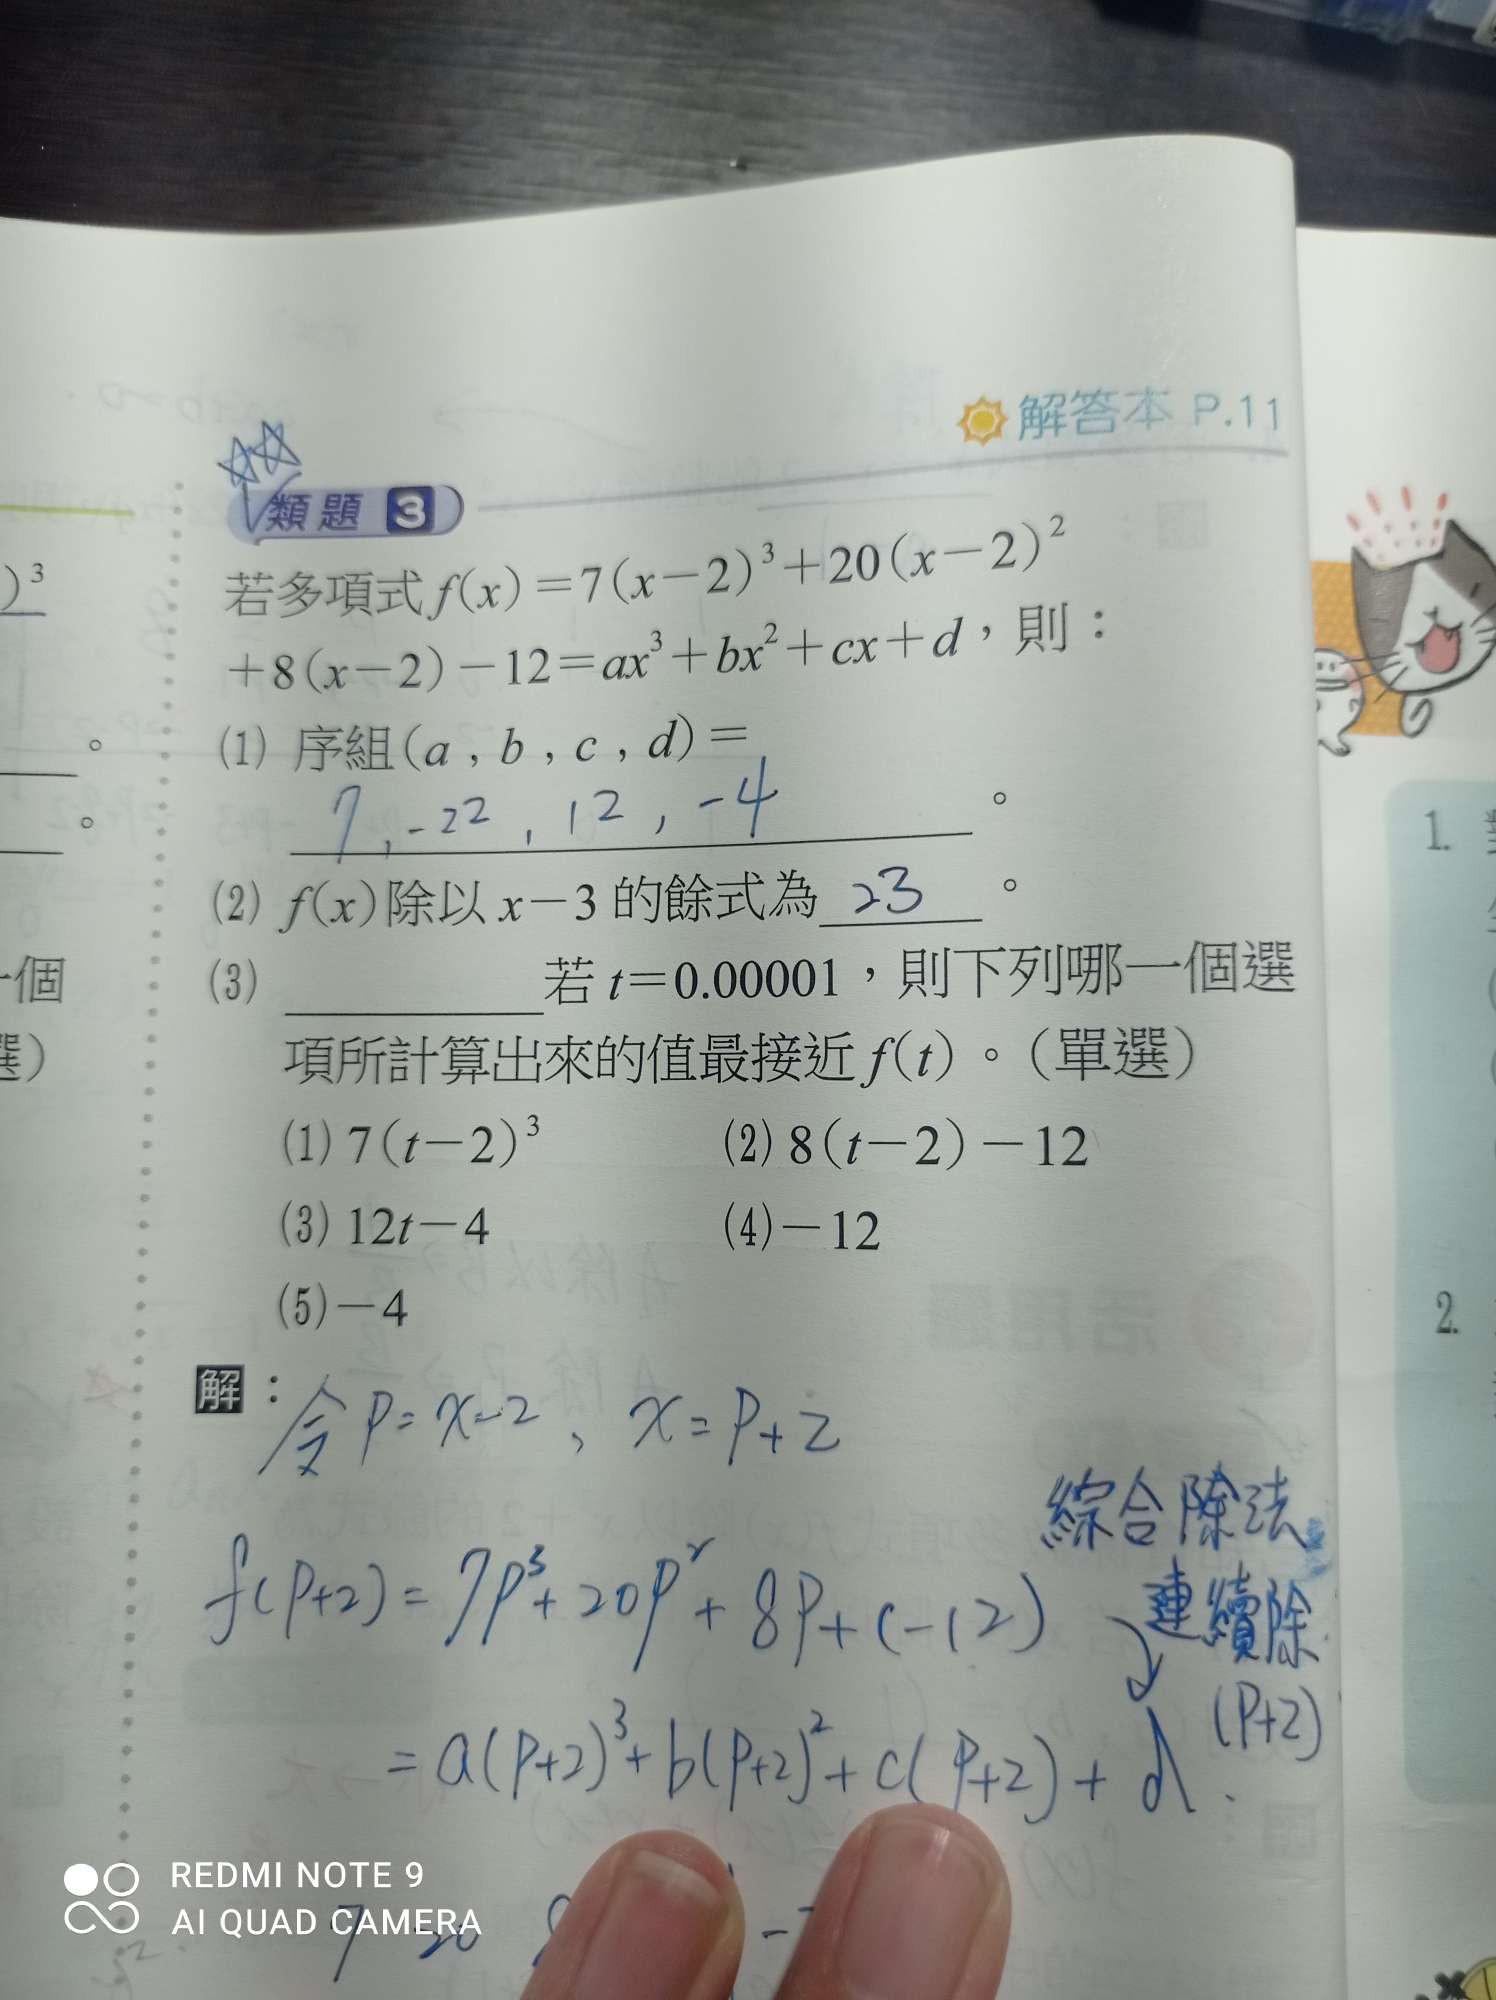 解答本 P.11
類題 3
若多項式 f(x)=7(x-2)³+20(x-2)²
+8(x-2)-12=ax³+bx²+cx+d,則:
(1) 序組(a,b,c,d)=
7,-22,12,-4。
(2) f(x)除以 x-3 的餘式為 23。
(3) ______若 t=0.00001,則下列哪一個選
項所計算出來的值最接近 f(t)。(單選)
(1) 7(t-2)³ (2) 8(t-2)-12
(3) 12t-4 (4) -12
(5) -4
解:令 P=x-2、x=P+2
綜合除法
f(P+2)=7P³+20P²+8P+(-12)
連續除
(P+2)
=a(P+2)³+b(P+2)²+c(P+2)+d.
7 20
)³
。
。
一個
選)
1.
2.
REDMI NOTE 9
AI QUAD CAMERA